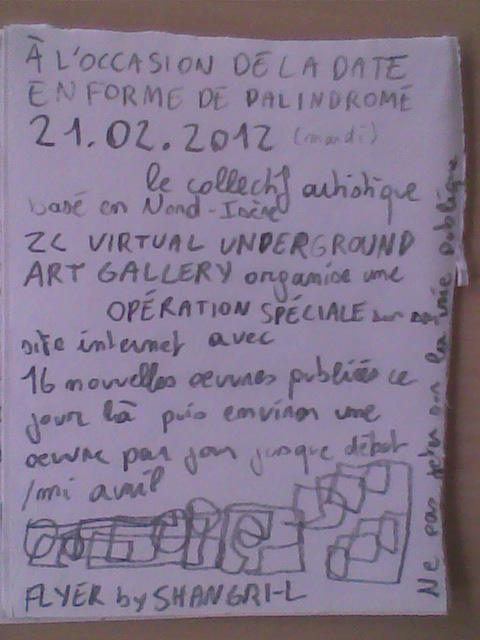 À L'OCCASION DE LA DATE
EN FORME DE PALINDROME
21.02.2012 (mardi)
le collectif artistique
basé en Nord-Isère
ZC VIRTUAL UNDERGROUND
ART GALLERY organise une
OPÉRATION SPÉCIALE sur
site internet avec
16 nouvelles oeuvres publiées ce
jour là puis environ une
oeuvre par jour jusque début
/mi avril
FLYER by SHANGRI-L
Ne pas jeter sur la voie publique